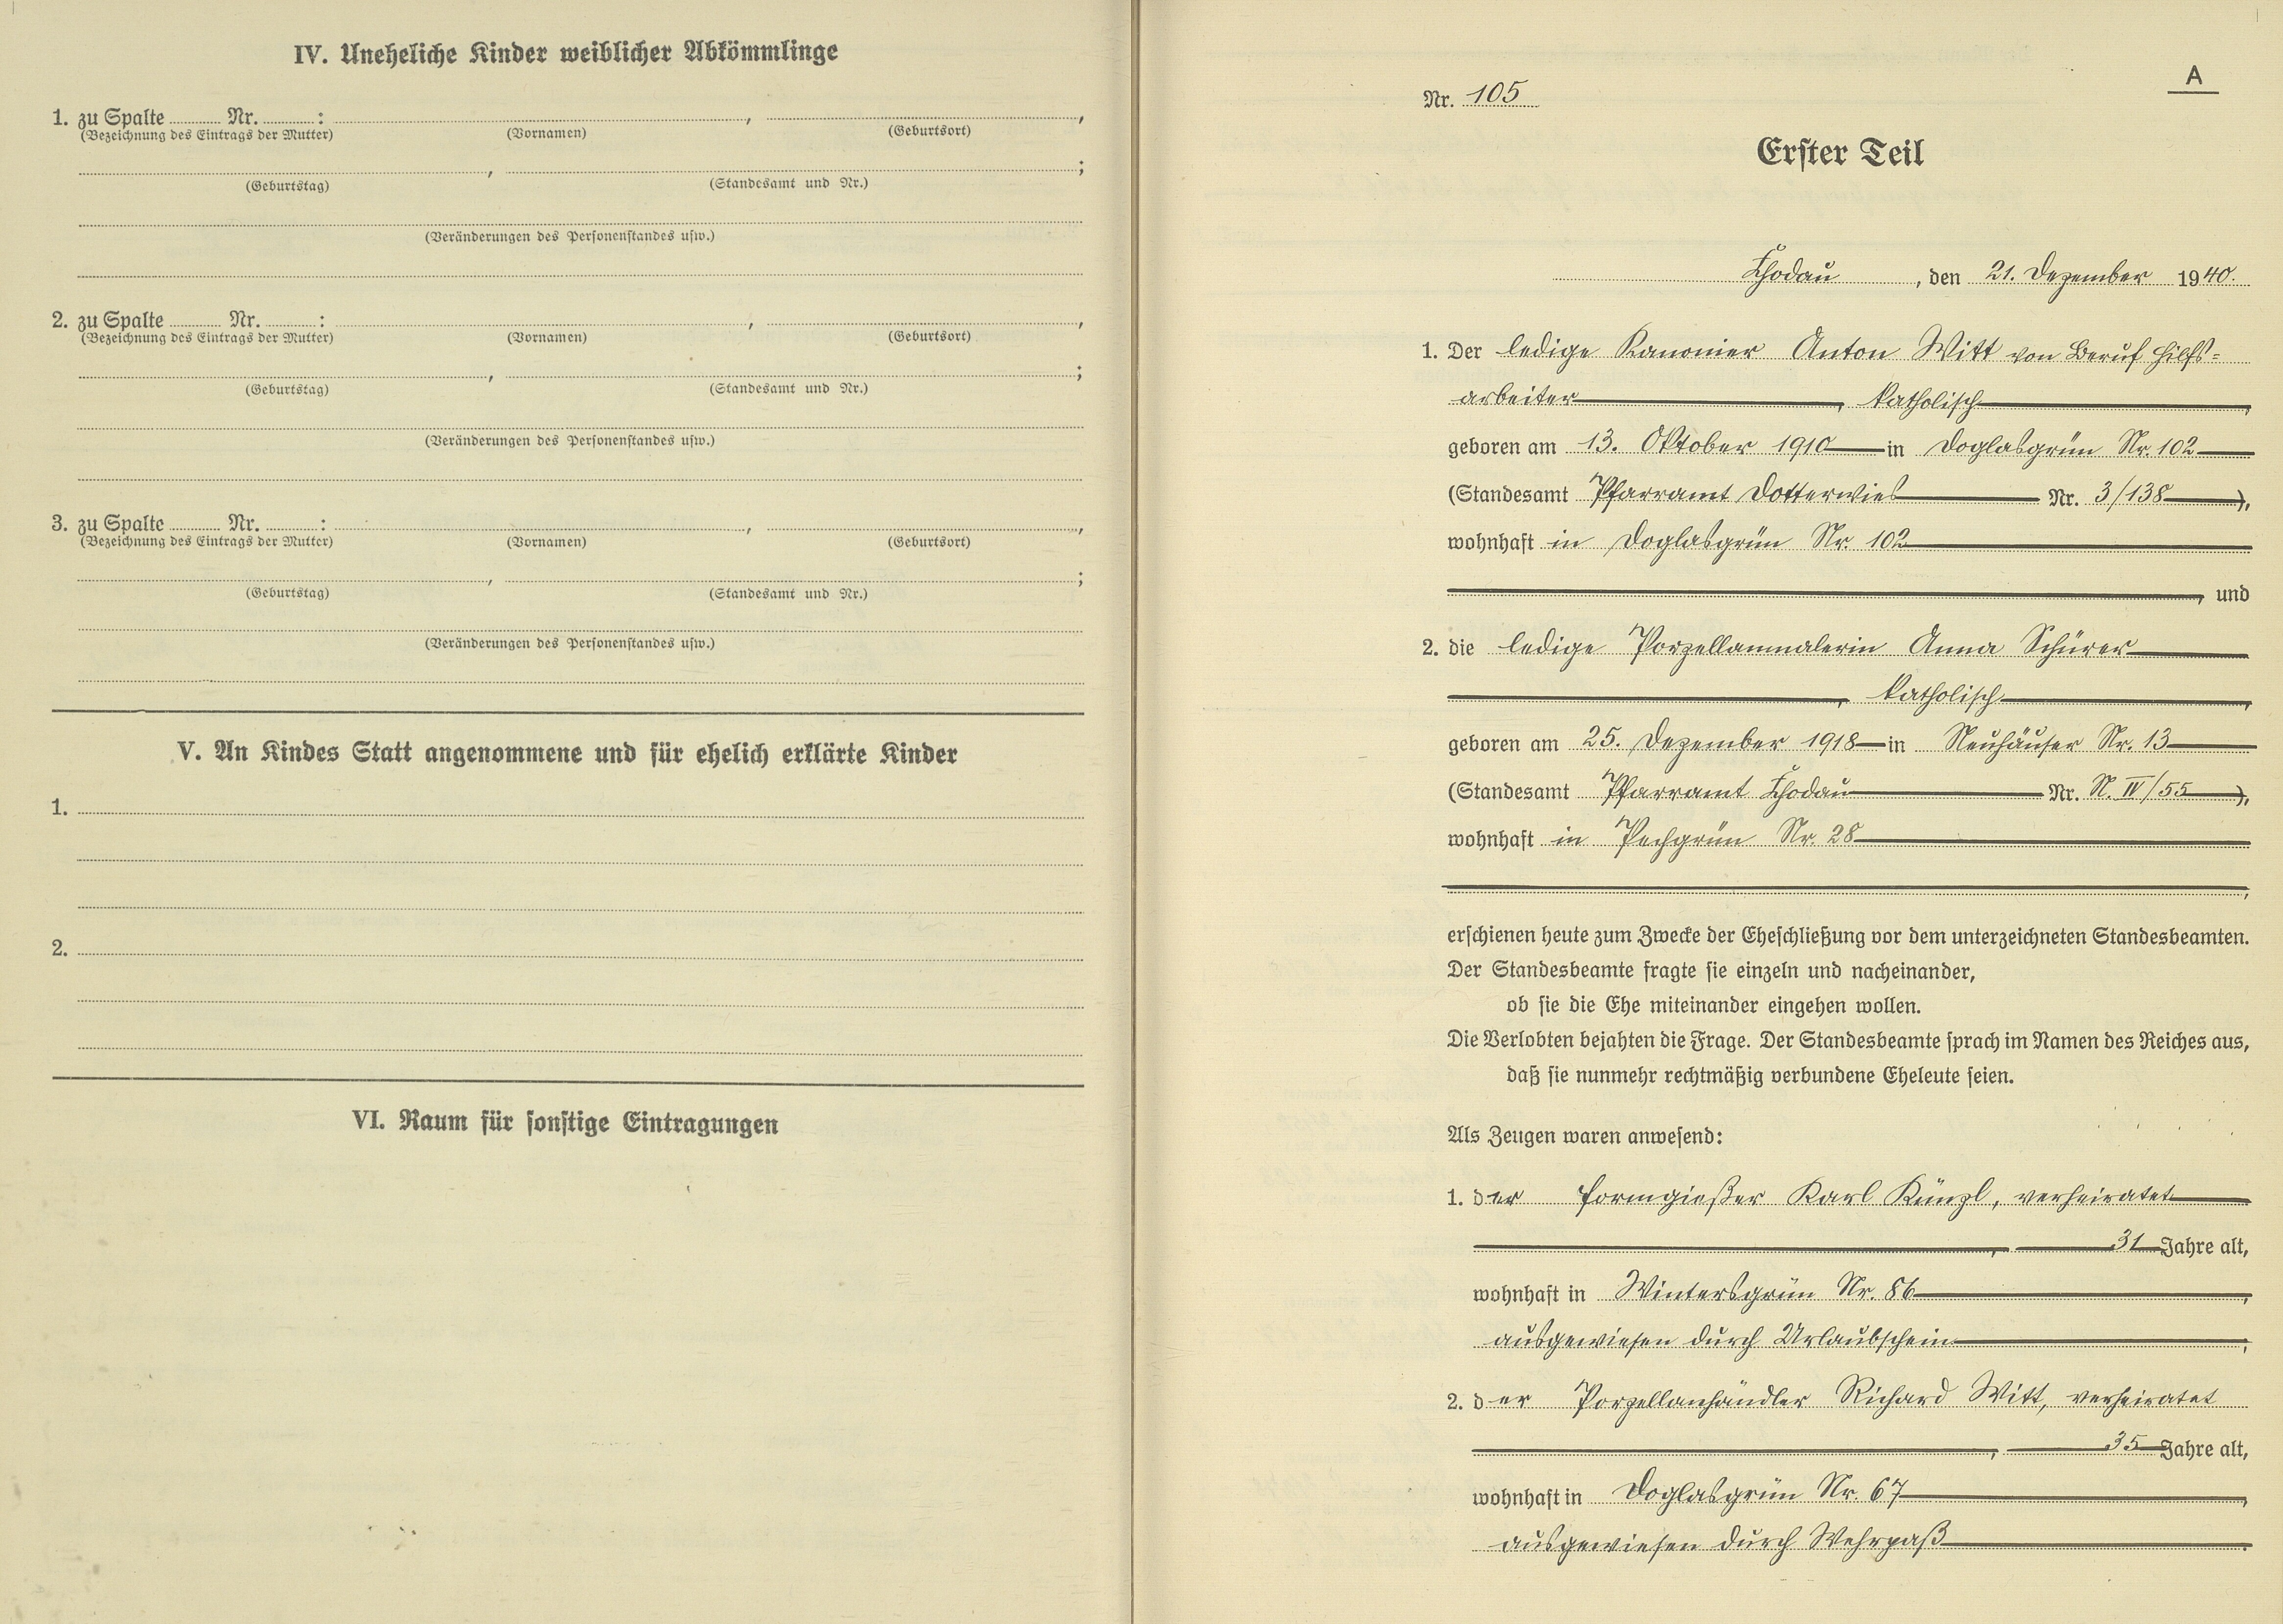 IV. Uneheliche Kinder weiblicher Abkömmlinge
1. zu Spalte ........ Nr. ........ : ........, ........,
(Bezeichnung des Eintrags der Mutter) (Vornamen) (Geburtsort)
........, ........;
(Geburtstag) (Standesamt und Nr.)
(Veränderungen des Personenstandes usw.)
2. zu Spalte ........ Nr. ........ : ........, ........,
(Bezeichnung des Eintrags der Mutter) (Vornamen) (Geburtsort)
........, ........;
(Geburtstag) (Standesamt und Nr.)
(Veränderungen des Personenstandes usw.)
3. zu Spalte ........ Nr. ........ : ........, ........,
(Bezeichnung des Eintrags der Mutter) (Vornamen) (Geburtsort)
........, ........;
(Geburtstag) (Standesamt und Nr.)
(Veränderungen des Personenstandes usw.)
V. An Kindes Statt angenommene und für ehelich erklärte Kinder
1.
2.
VI. Raum für sonstige Eintragungen
A
Nr. 105
Erster Teil
Chodau, den 21. Dezember 1940.
1. Der ledige Kanonier Anton Witt von Beruf Hilfs=
arbeiter, katholisch,
geboren am 13. Oktober 1910 in Doglasgrün Nr. 102
(Standesamt Pfarramt Dotterwies Nr. 3/138),
wohnhaft in Doglasgrün Nr. 102
, und
2. die ledige Porzellanmalerin Anna Schürer
, katholisch,
geboren am 25. Dezember 1918 in Neuhäuser Nr. 13
(Standesamt Pfarramt Chodau Nr. N. IV/55),
wohnhaft in Pechgrün Nr. 28
,
erschienen heute zum Zwecke der Eheschließung vor dem unterzeichneten Standesbeamten.
Der Standesbeamte fragte sie einzeln und nacheinander,
ob sie die Ehe miteinander eingehen wollen.
Die Verlobten bejahten die Frage. Der Standesbeamte sprach im Namen des Reiches aus,
daß sie nunmehr rechtmäßig verbundene Eheleute seien.
Als Zeugen waren anwesend:
1. der Formgießer Karl Künzl, verheiratet
, 31 Jahre alt,
wohnhaft in Wintersgrün Nr. 86,
ausgewiesen durch Urlaubschein;
2. der Porzellanhändler Richard Witt, verheiratet
, 35 Jahre alt,
wohnhaft in Doglasgrün Nr. 67,
ausgewiesen durch Wehrpaß.